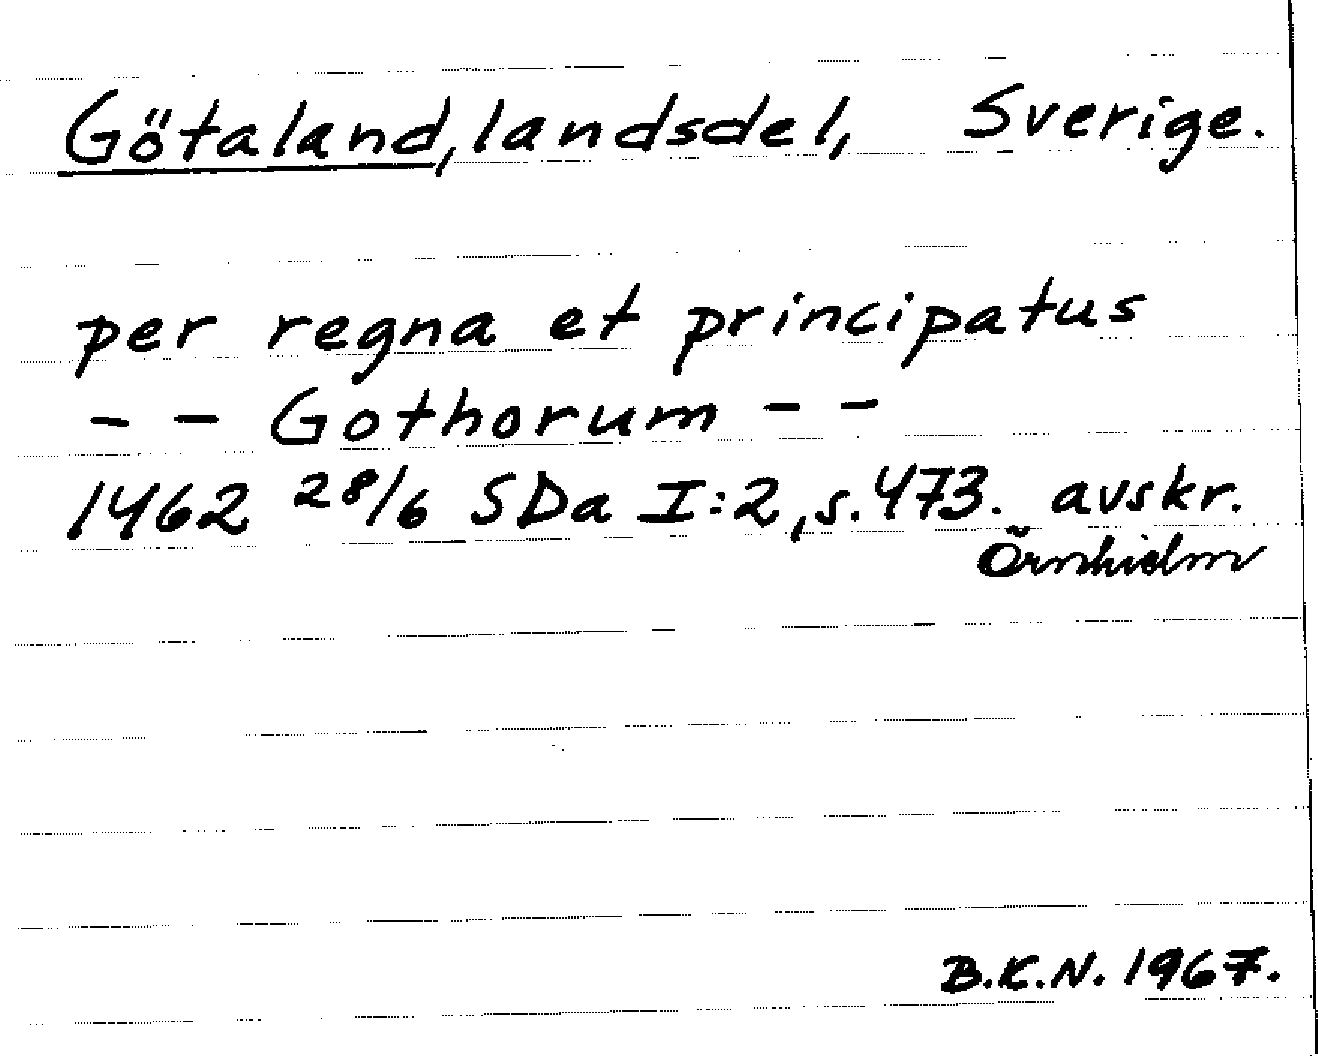 Götaland, landsdel, Sverige.
per regna et principatus
- - Gothorum - -
1462 28/6 SDa I:2, s. 473. avskr.
Örnhielm
B.K.N. 1967.